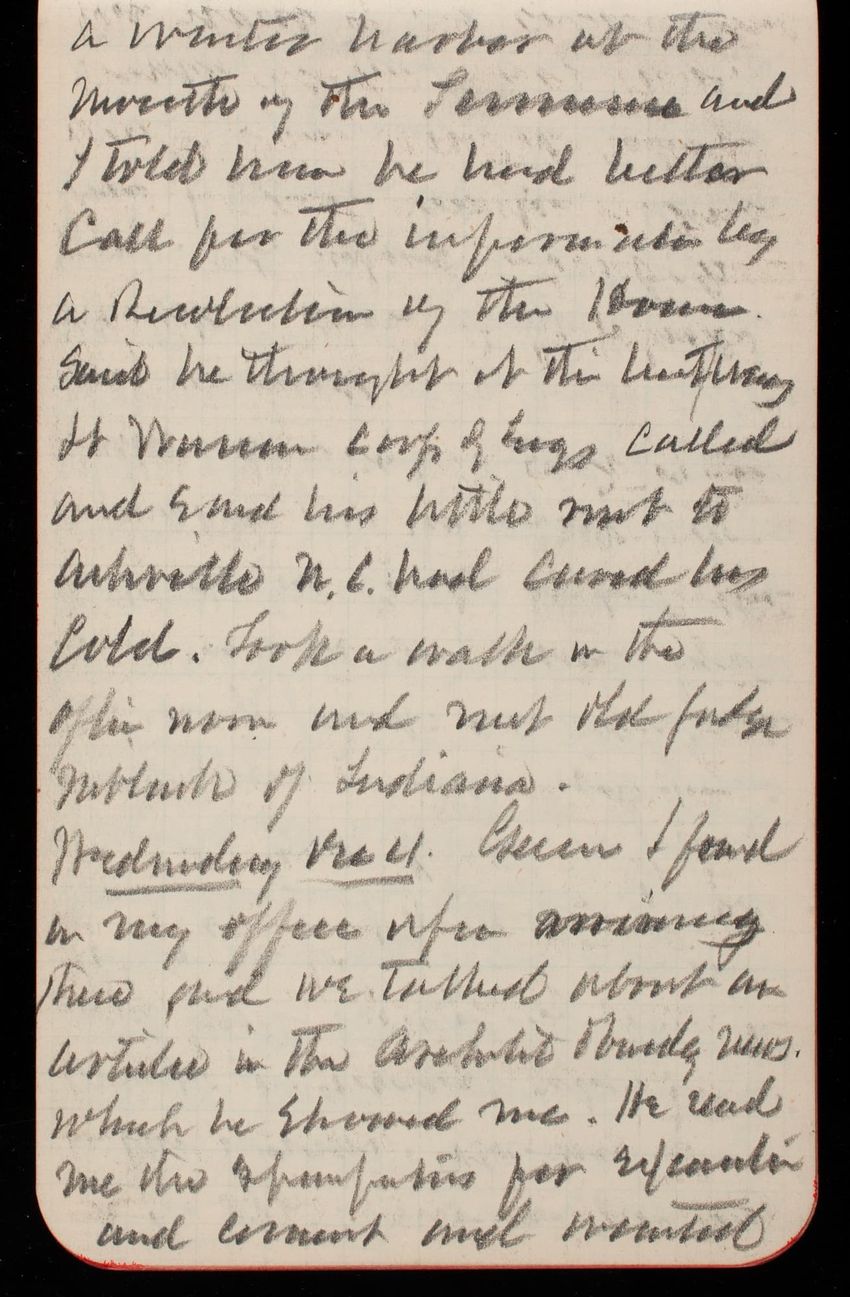 a winter harbor at the
mouth of the Tennessee and
I told him he had better
Call for the information by
a Resolution of the House.
Said he thought it the best way
Lt Warren Corps of Engs called
and said his little visit to
Ashville N.C. had cured his
Cold. Took a walk in the
after noon and met old Judge
Niblack of Indiana.
Wednesday Dec 21. Green I found
in my office upon arriving
there and we talked about an
article in the Architects News.
which he showed me. He read
me the for
and cement and wanted